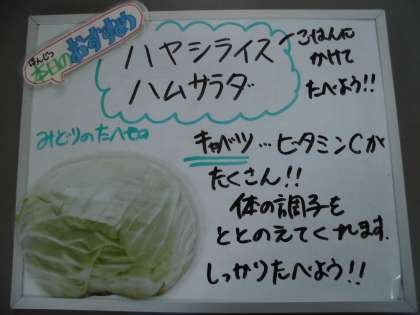 ほんじつ
本日の
おすすめ
ハヤシライス
ごはんに
かけて
たべよう!!
ハムサラダ
みどりのたべもの
キャベツ…ビタミンCが
たくさん!!
体の調子を
ととのえてくれます。
しっかりたべよう!!